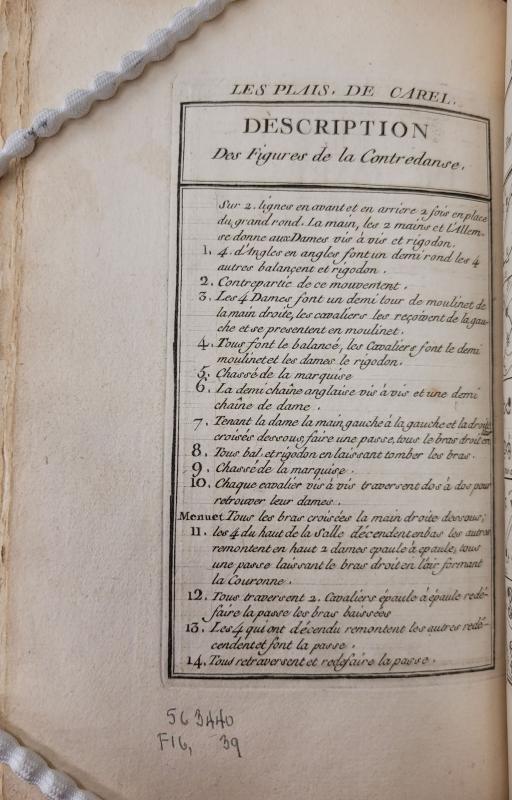 LES PLAIS. DE CAREL.
DESCRIPTION
Des Figures de la Contredanse.
Sur 2. lignes en avant et en arriere 2 fois en place
du grand rond. La main, les 2 mains et L'Allem-
se donne aux Dames vis à vis et rigodon.
1. 4. d'Angles en angles font un demi rond les 4
autres balançent et rigodon.
2. Contrepartie de ce mouvement.
3. Les 4 Dames font un demi tour de moulinet de
la main droite, les cavaliers les reçoivent de la gau-
che et se presentent en moulinet.
4. Tous font le balancé, les Cavaliers font le demi
moulinet et les dames le rigodon.
5. Chassé de la marquise
6. La demi chaîne anglaise vis à vis et une demi
chaîne de dame.
7. Tenant la dame la main gauche à la gauche et la droite
croisés dessous, faire une passe, tous le bras droit en
8. Tous bal. et rigodon en laissant tomber les bras.
9. Chassé de la marquise.
10. Chaque cavalier vis à vis traversent dos à dos pour
retrouver leur dames.
Menuet Tous les bras croisées la main droite dessous;
11. les 4 du haut de la Salle décendent enbas les autres
remontent en haut 2 dames epaule à epaule, tous
une passe laissant le bras droit en l'air formant
la Couronne.
12. Tous traversent 2. Cavaliers épaule à épaule redé-
faire la passe les bras baissées
13. Les 4 qui ont décendu remontent les autres redé-
cendent et font la passe.
14. Tous retraversent et redefaire la passe.
563440
F16, 39